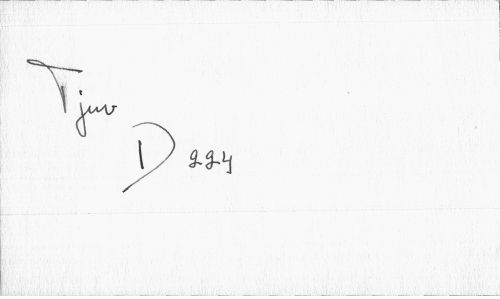 Tjuv
D 224